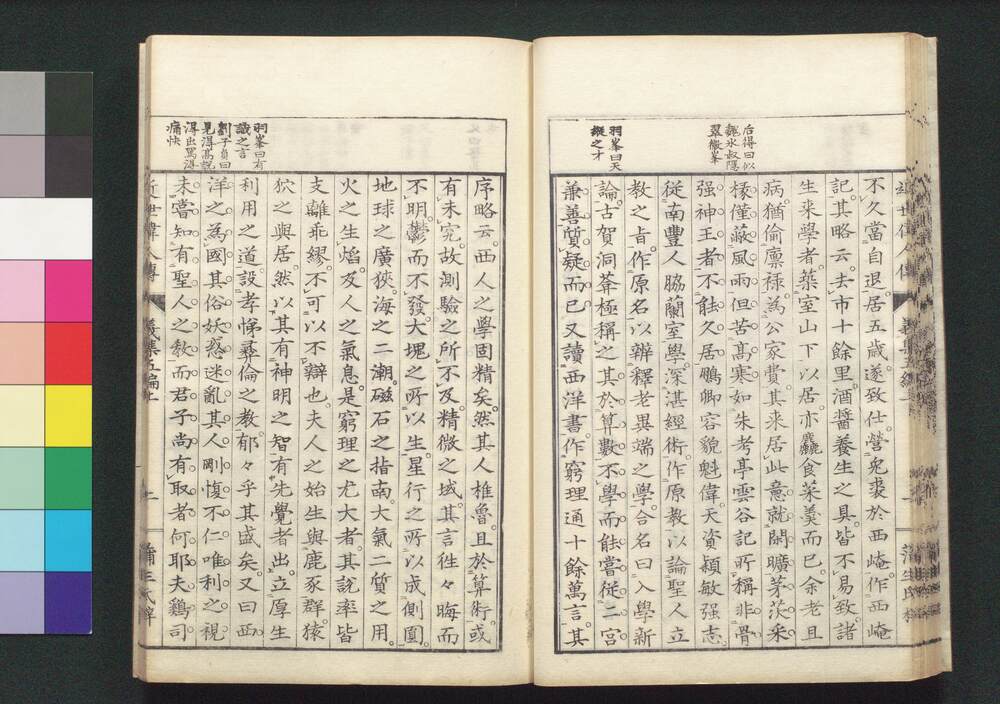 后得曰似
魏氷叔隱
翠微峯
羽峯曰天
縱之才
不久當自退居五歲遂致仕營菟裘於西崦作西崦
記其略云去市十餘里酒醬養生之具皆不易致諸
生來學者築室山下以居亦麤食菜羹而已余老且
病猶偷廩祿為公家費其來居此意就閑曠茅茨采
椽僅蔽風雨但苦高寒如朱考亭雲谷記所稱非骨
强神王者不能久居鵬卿容貌魁偉天資穎敏强志
從南豐人脇蘭室學深湛經術作原教以論聖人立
教之旨作原名以辨釋老異端之學合名曰入學新
論古賀洞菴極稱之其於算數不學而能嘗從二宮
兼善質疑而已又讀西洋書作窮理通十餘萬言其
羽峯曰有
識之言
劉子貞曰
見得高説
得出罵得
痛快
序略云西人之學固精矣然其人椎魯且於算術或
有未究故測驗之所不及精微之域其言徃々晦而
不明鬱而不發大塊之所以生星行之所以成側圓
地球之廣狹海之二潮磁石之指南大氣二質之用
火之生焰及人之氣息是窮理之尤大者其説率皆
支離乖繆不可以不辯也夫人之始生與鹿豕群猿
狖之與居然以其有神明之智有先覺者出立厚生
利用之道設孝悌彝倫之教郁々乎其盛矣又曰西
洋之為國其俗妖惑迷亂其人剛愎不仁唯利之視
未嘗知有聖人之教而君子尚有取者何耶夫鷄司
近世偉人傳
義集五編上
蒲生氏梓